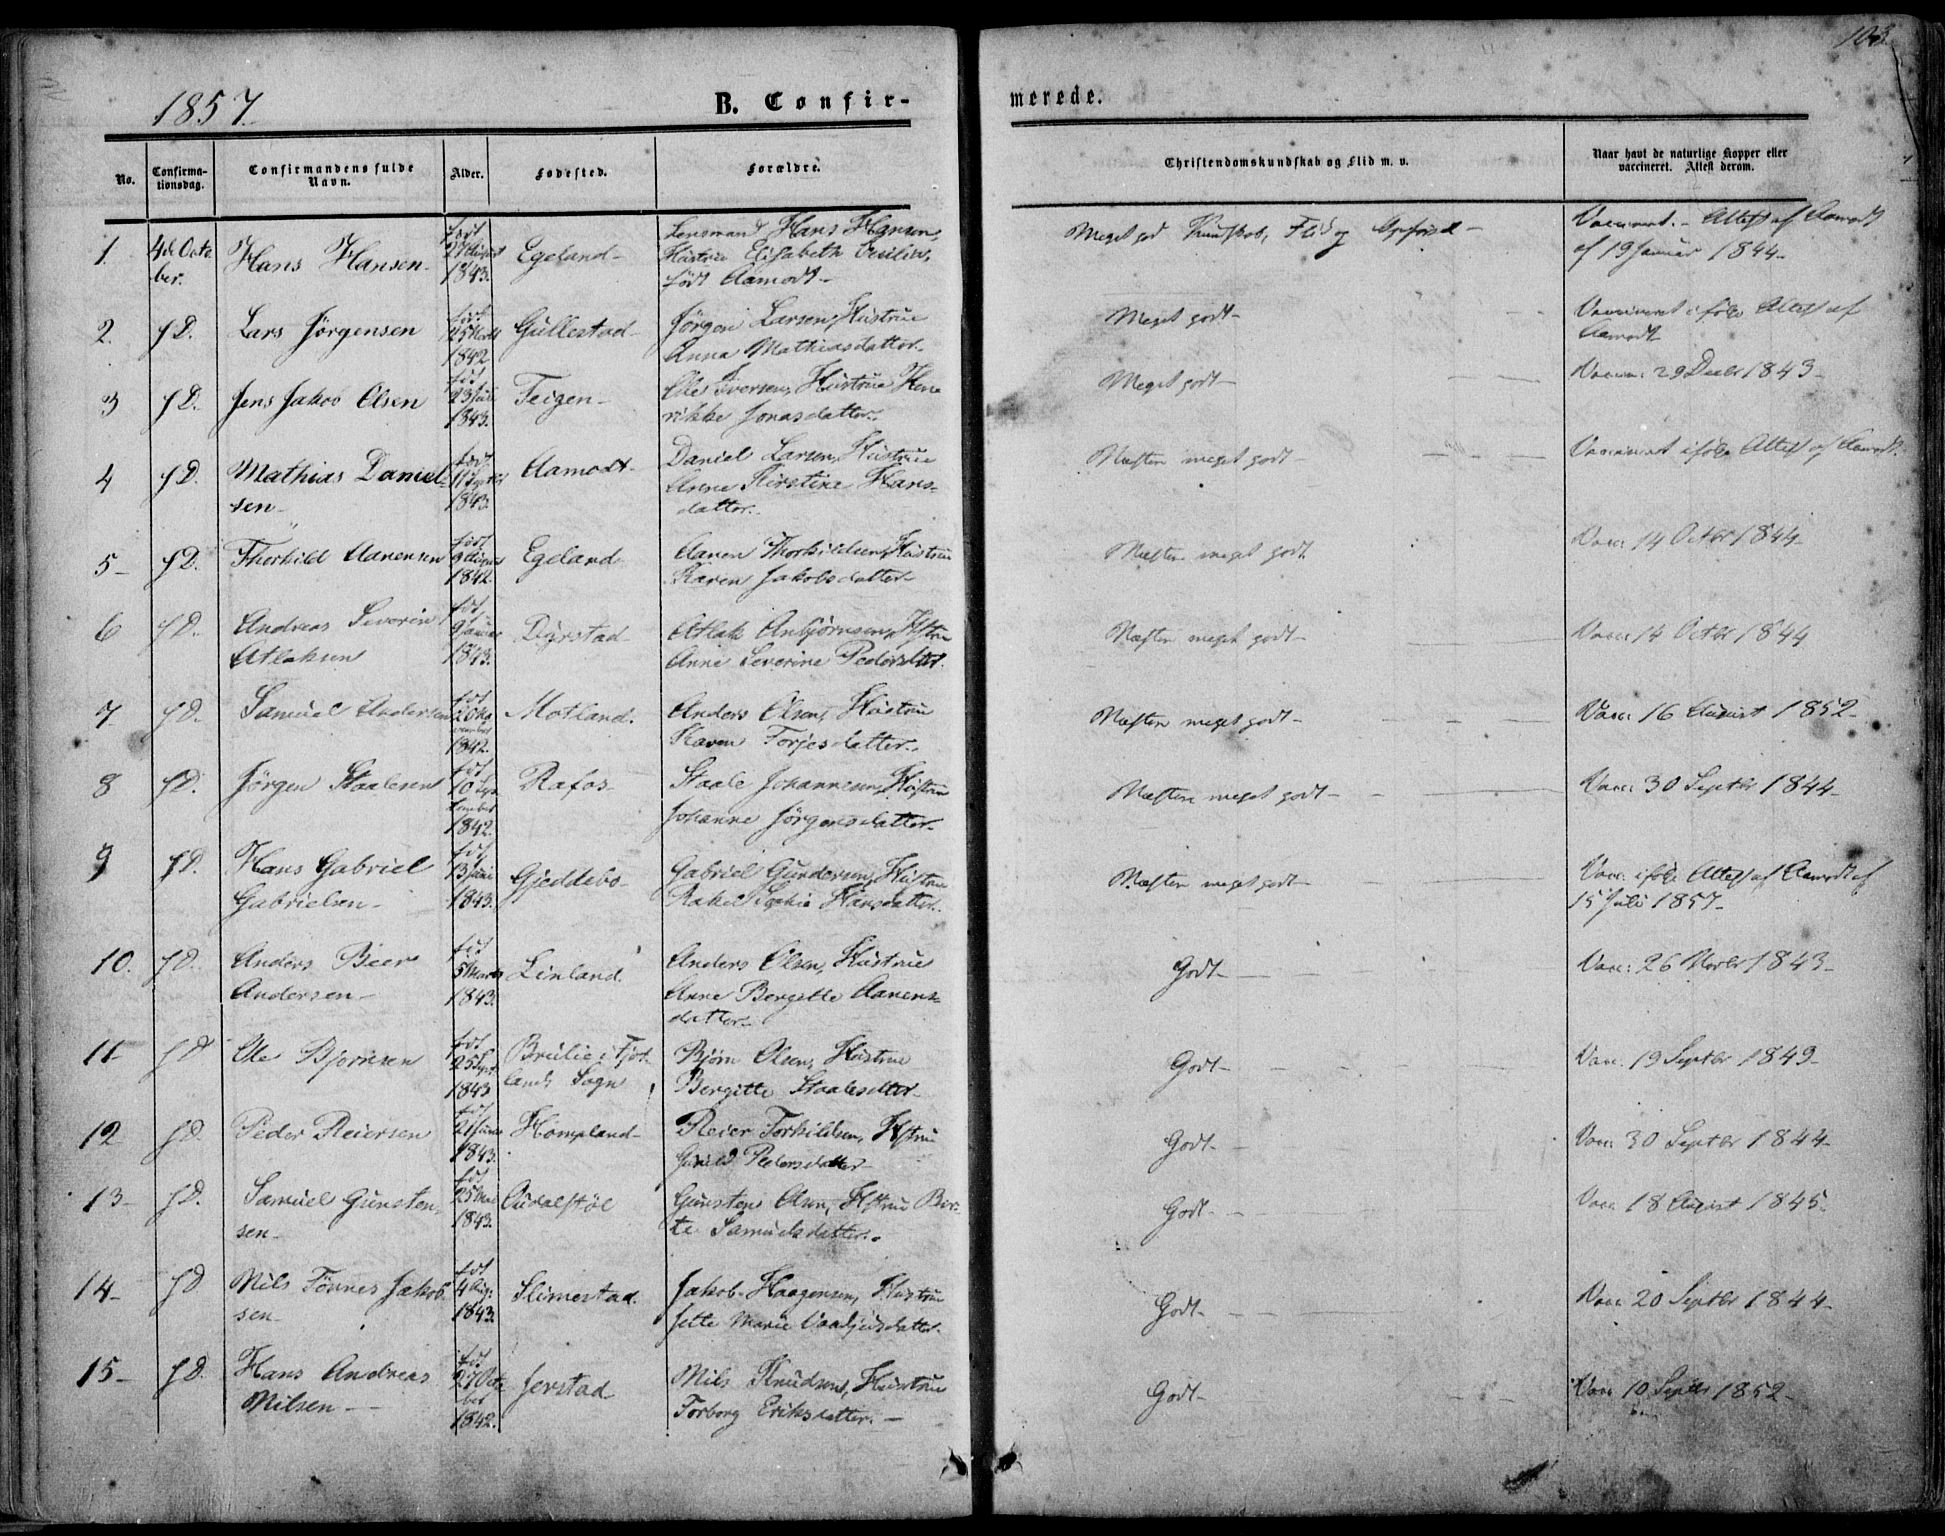 103
1857.
B. Confir-
merede.
No.
Confirma-
tionsdag.
Confirmandens fulde
Navn.
Alder.
Fødested.
Forældre.
Christendomskundskab og Flid m. v.
Naar havt de naturlige Kopper eller
vaccineret. Attest derom.
1.
4de Octo
ber.
Hans Hansen
født
August
1843.
Egeland
Lensmand Hans Hansen,
Hustrue Elisabeth
født Aamodt
Meget god Kundskab, Flid og Opførsel
Vaccineret. Attest af Aamodt
af 19 Januar 1844
2.
s D.
Lars Jörgensen
født
1842
Gullestad
Jörgen Larsen, Hustrue
Anna Mathiasdatter.
Meget godt
Vaccineret ifølge Attest af
Aamodt
3
s D.
Jens Jakob Olsen
født
1843.
Feigen
Ole Iversen, Hustrue Hen
rikke Jonasdatter.
Meget godt
Vacc: 29 Decbr 1843
4
s D.
Mathias Daniel-
sen
født
1843.
Aamodt
Daniel Larsen, Hustrue
Kirstine Hans-
datter.
Næsten meget godt
Vaccineret ifølge Attest af Aamodt.
5
s D.
Thorkild Aanensen
født
1842.
Egeland
Aanen Thorkildsen, Hustrue
Karen Jakobsdatter
Næsten meget godt
Vacc: 14 Octbr 1844
6
s D.
Andreas Severin
Atlaksen
født
9 Januar
1843.
Dyrstad
Atlak Anbjörnsen, Hstru
Anne Severine Pedersdatter.
Næsten meget godt
Vacc: 14 Octbr 1844
7
s D.
Samuel Andersen
født
26 No
vember
1842.
Motland.
Anders Olsen, Hustrue
Karen Torjesdatter.
Næsten meget godt
Vacc: 16 August 1852
8
s D.
Jörgen Staalesen
født
10 Sep
tember
1842.
Rafos
Staale Johannesen, Hustrue
Johanne Jörgensdatter
Næsten meget godt
Vacc: 30 Septbr 1844
9
s D.
Hans Gabriel
Gabrielsen
født
1843.
Gjeddebo
Gabriel Gundersen, Hustrue
Rakel Sophie Hansdatter.
Næsten meget godt
Vacc: ifølge Attest af Aamodt af
15 Juli 1857
10.
s D.
Anders Beer
Andersen
født
5 Marts
1843.
Linland.
Anders Olsen, Hustrue
Anne Bergitte Aanens-
datter
Godt
Vacc: 26 Novbr 1843
11
s D
Ole Bjørnsen
født
25 Sept.
1843
Brulie i Fjot
lands Sogn
Bjørn Olsen, Hustrue
Bergitte Staalesdtter
Godt
Vacc. 19 Septbr 1849
12
s D.
Peder Reiersen
født
21 Januar
1843.
Hompland
Reier Torkildsen, Hstrue
Gunild Pedersdatter
Godt
Vacc. 30 Septbr 1844
13
s D.
Samuel Gunsten-
sen
født
1843.
Audalstöl
Gunsten Olsen, Hstrue Ber-
te Samuelsdatter.
Godt
Vacc. 18 August 1845
14
s D
Nils Tönnes Jakob-
sen
født
4 Aug.
1843.
Slimestad.
Jakob Haagensen, Hustrue
Jette Marie
Godt
Vacc 20 Septbr 1844
15
s D.
Hans Andreas
Nilsen
født
27 Octo
ber
1842.
Jerstad
Nils Knudsen, Hustrue
Torborg Eriksdatter.
Godt
Vacc 10 Septbr 1852